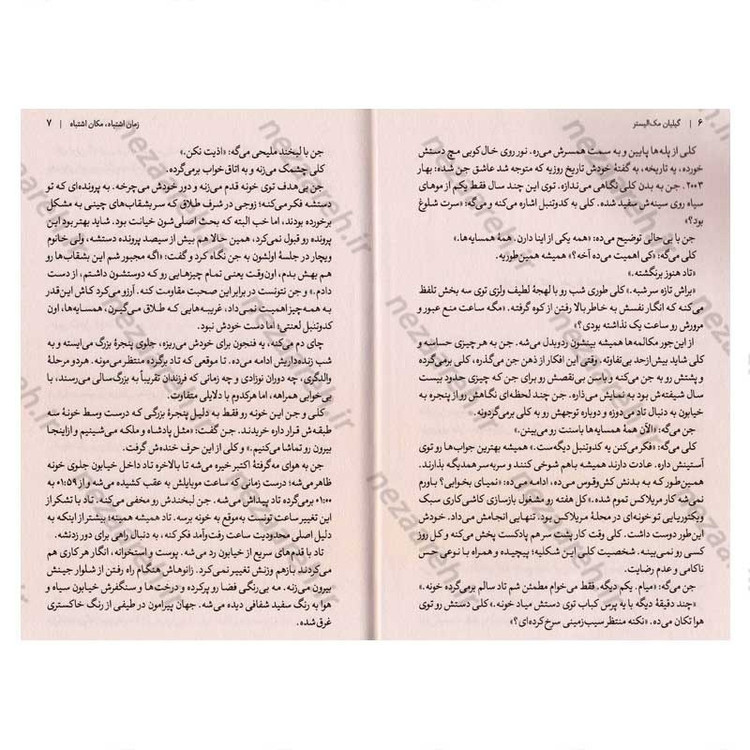 ۶ | گیلیان مک‌الیستر
کلی از پله‌ها پایین و به سمت همسرش می‌ره. نور روی خال‌کوبی مچ دستش
خورده، یه تاریخه، به گفتهٔ خودش تاریخ روزیه که متوجه شد عاشق جن شده: بهار
۲۰۰۳. جن به بدن کلی نگاهی می‌ندازه. توی این چند سال فقط یکم از موهای
سیاه روی سینه‌ش سفید شده. کلی به کدوتنبل اشاره می‌کنه و می‌گه: «سرت شلوغ
بود؟»
جن با بی‌حالی توضیح می‌ده: «همه یکی از اینا دارن. همهٔ همسایه‌ها.»
کلی می‌گه: «کی اهمیت می‌ده آخه؟» همیشه همین‌طوریه.
«تاد هنوز برنگشته.»
«براش تازه سر شبه.» کلی طوری شب رو با لهجهٔ لطیف ولزی توی سه بخش تلفظ
می‌کنه که انگار نفسش به خاطر بالا رفتن از کوه گرفته. «مگه ساعت منع عبور و
مرورش رو ساعت یک نذاشته بودی؟»
از این‌جور مکالمه‌ها همیشه بینشون ردوبدل می‌شه. جن به هر چیزی حساسه و
کلی شاید بیش‌ازحد بی‌تفاوته. وقتی این افکار از ذهن جن می‌گذره، کلی برمی‌گرده
و پشتش رو به جن می‌کنه و باسن بی‌نقصش رو برای جن که چیزی حدود بیست
سال شیفته‌ش بوده به نمایش می‌ذاره. جن چند لحظه‌ای نگاهش رو از پنجره به
خیابون به دنبال تاد می‌دوزه و دوباره توجهش رو به کلی برمی‌گردونه.
جن می‌گه: «الآن همهٔ همسایه‌ها باسنت رو می‌بینن.»
کلی می‌گه: «فکر می‌کنن یه کدوتنبل دیگه‌ست.» همیشه بهترین جواب‌ها رو توی
آستینش داره. عادت دارند همیشه باهم شوخی کنند و سربه‌سر همدیگه بذارند.
همین‌طور که به بدنش کش‌وقوس می‌ده، ادامه می‌ده: «نمیای بخوابی؟ باورم
نمی‌شه کار مریلاکس تموم شده.» کل هفته رو مشغول بازسازی کاشی‌کاری سبک
ویکتوریایی تو خونه‌ای در محلهٔ مریلاکس بود. تنهایی انجامش می‌داد. خودش
این‌طور دوست داشت. کلی وقت کار پشت سر هم پادکست پخش می‌کنه و کم
کسی رو نمی‌بینه. شخصیت کلی این شکلیه؛ پیچیده و همراه با نوعی حس
ناکامی و عدم رضایت.
جن می‌گه: «میام. یکم دیگه. فقط می‌خوام مطمئن شم تاد سالم برمی‌گرده خونه.»
«چند دقیقهٔ دیگه با یه پرس کباب توی دستش میاد خونه.» کلی دستش رو توی
هوا تکان می‌ده. «نکنه منتظر سیب‌زمینی سرخ‌کرده‌ای؟»
زمان اشتباه، مکان اشتباه | ۷
جن با لبخند ملیحی می‌گه: «اذیت نکن.»
کلی چشمک می‌زنه و به اتاق خواب برمی‌گرده.
جن بی‌هدف توی خونه قدم می‌زنه و دور خودش می‌چرخه. به پرونده‌ای که تو
دستشه فکر می‌کنه؛ زوجی در شرف طلاق که سر بشقاب‌های چینی به مشکل
برخورده بودند، اما خب البته که بحث اصلی‌شون خیانت بود. شاید بهتر بود این
پرونده رو قبول نمی‌کرد، همین حالا هم بیش از سیصد پرونده دستشه، ولی خانوم
ویچار در جلسهٔ اولشون به جن نگاه کرد و گفت: «اگه مجبور شم این بشقاب‌ها رو
هم بهش بدم، اون‌وقت یعنی تمام چیزهایی رو که دوستشون داشتم، از دست
دادم.» و جن نتونست در برابر این صحبت مقاومت کنه. آرزو می‌کرد کاش این‌قدر
به همه‌چیز اهمیت نمی‌داد، غریبه‌هایی که طلاق می‌گیرن، همسایه‌ها، اون
کدوتنبل لعنتی؛ اما دست خودش نبود.
چای دم می‌کنه، یه فنجون برای خودش می‌ریزه، جلوی پنجرهٔ بزرگ می‌ایسته و به
شب زنده‌داریش ادامه می‌ده. تا موقعی که تاد برگرده منتظر می‌مونه. هر دو مرحلهٔ
والدگری، چه دوران نوزادی و چه زمانی که فرزندان تقریباً به بزرگ‌سالی می‌رسند، با
بی‌خوابی همراهه، اما هرکدوم با دلایلی متفاوت.
کلی و جن این خونه رو فقط به دلیل پنجرهٔ بزرگی که درست وسط خونهٔ سه
طبقه‌ش قرار داره خریدند. جن گفت: «مثل پادشاه و ملکه می‌شینیم و ازاینجا
بیرون رو تماشا می‌کنیم.» و کلی از این حرف خنده‌ش گرفت.
جن به هوای مه‌گرفتهٔ اکتبر خیره می‌شه تا بالاخره تاد داخل خیابون جلوی خونه
ظاهر می‌شه؛ درست زمانی که ساعت موبایلش به عقب کشیده می‌شه و از ۰۱:۵۹ به
۰۱:۰۰ برمی‌گرده تاد پیداش می‌شه. جن لبخندش رو مخفی می‌کنه. تاد با تشکر از
این تغییر ساعت تونست به‌موقع به خونه برسه. تاد همیشه همینه؛ بیشتر از اینکه به
دلیل اصلی محدودیت ساعت رفت‌وآمد فکر کنه، به دنبال راهی برای دور زدنشه.
تاد با قدم‌های سریع از خیابون رد می‌شه. پوست و استخوانه، انگار هر کاری هم
می‌کردند بازهم وزنش تغییر نمی‌کرد. زانوهاش هنگام راه رفتن از شلوار جینش
بیرون می‌زنه. مه بی‌رنگی فضا رو پر کرده و درخت‌ها و سنگفرش خیابون سیاه و
هوا به رنگ سفید شفافی دیده می‌شه. جهان پیرامون در طیفی از رنگ خاکستری
غرق شده.
nezaareh.ir